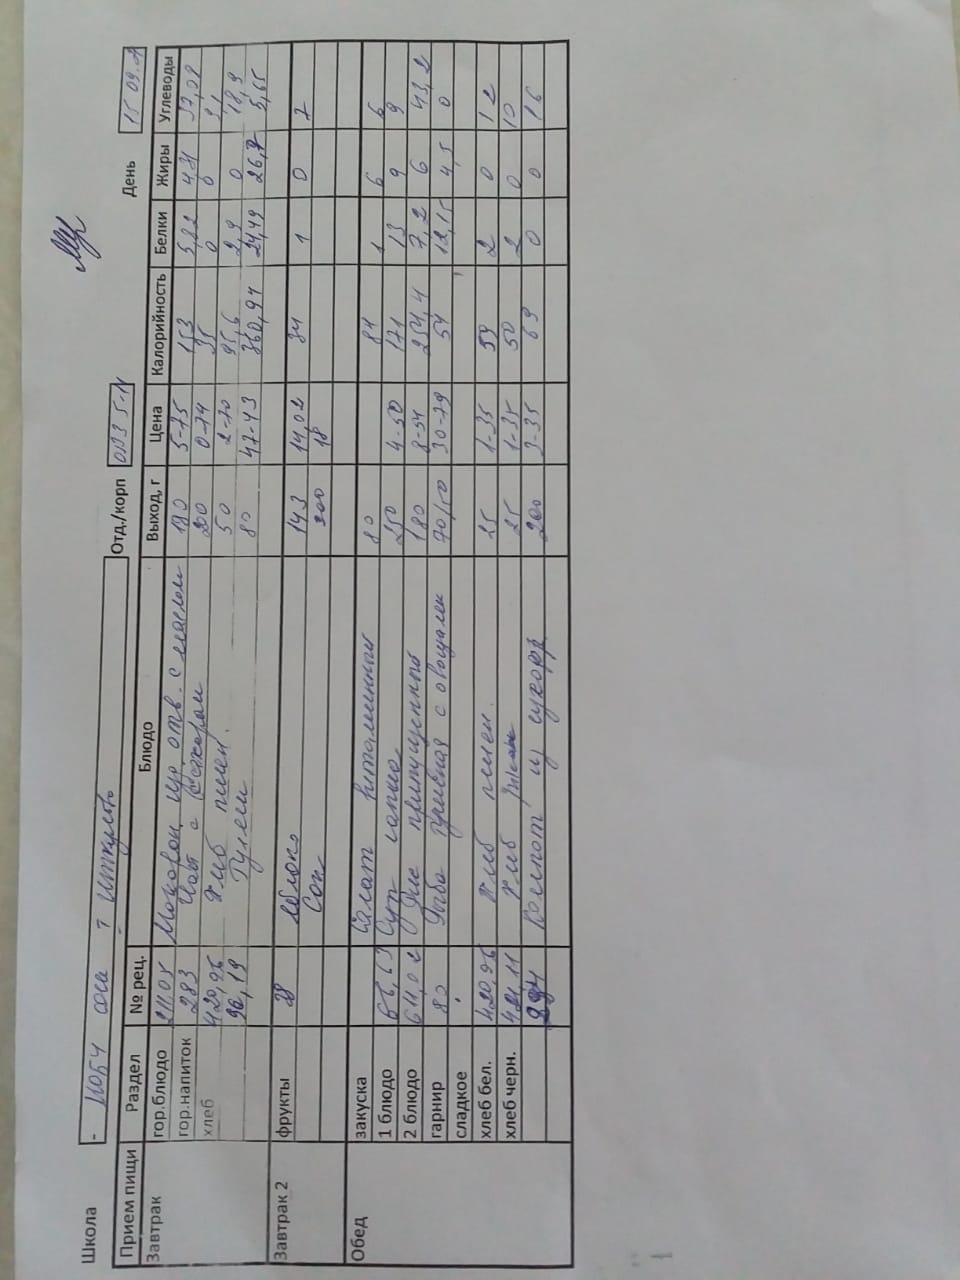 Школа - МОБУ СОШ Иткулово Отд./корп ОВЗ 5-11 День 15.09.
Прием пищи Раздел № рец. Блюдо Выход, г Цена Калорийность Белки Жиры Углеводы
Завтрак гор.блюдо 211.05 отв. с маслом 180 5-75 153 5,22 4,31
гор.напиток 283 Чай с сахаром 200 0-74 35 0 0 9,1
хлеб 420,96 Хлеб пшен. 50 2-70 95,6 2,9 0 18,9
Гуляш 80 47-43 360,94 24,49 5,65
Завтрак 2 фрукты яблоко 143 14,02 1 0 7
Сок 200 18
Обед закуска Салат витаминный 80 84 1 6 6
1 блюдо Суп лапша 250 4-50 171 13 9 9
2 блюдо 64,02 Рис припущенный 180 8-54 254,4 7,2 6 43,2
гарнир 80 Рыба с овощами 30-79 54 12,15 4,5 0
сладкое
хлеб бел. 420,96 Хлеб пшен. 25 1-35 59 2 0 12
хлеб черн. 421,11 Хлеб 25 1-35 50 2 0 10
Компот 200 3-35 69 0 0 16